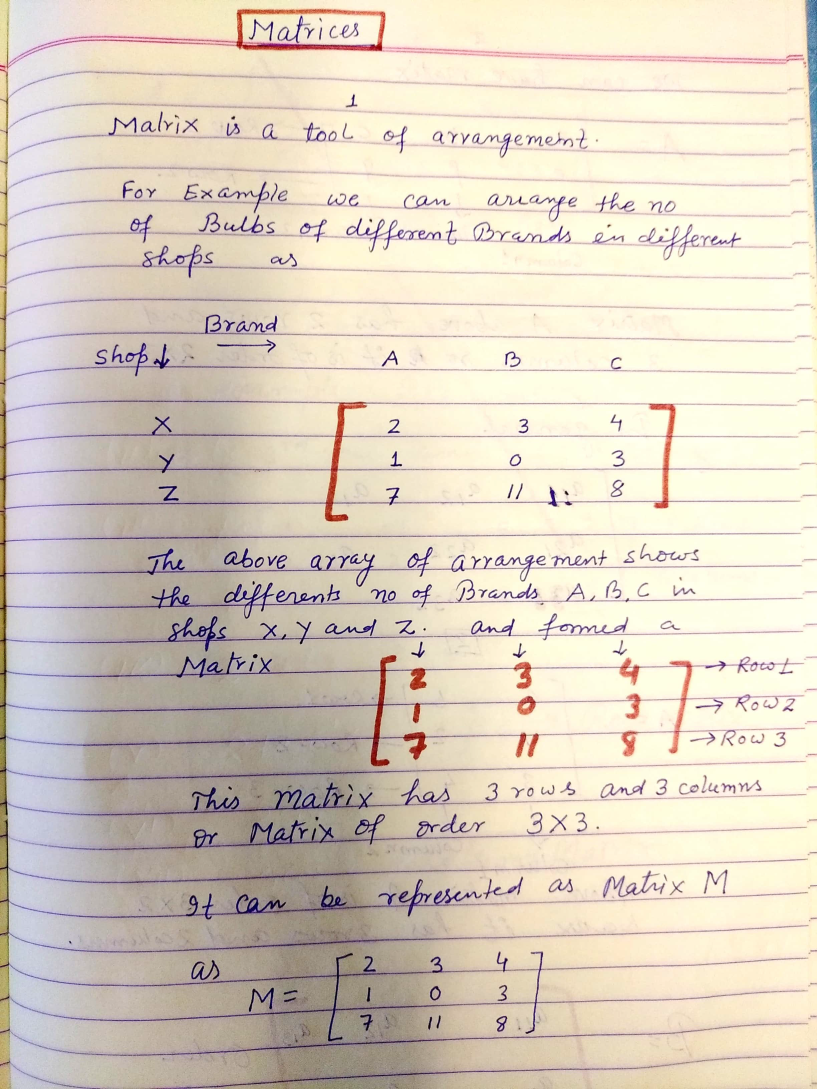 Matrices
1
Matrix is a tool of arrangement.
For Example we can arrange the no
of Bulbs of different Brands in different
shops as
Brand
Shop ↓ → A B C
X 2 3 4
Y 1 0 3
Z 7 11 8
The above array of arrangement shows
the differents no of Brands A, B, C in
shops X, Y and Z. and formed a
↓ ↓ ↓
Matrix 2 3 4 → Row 1
1 0 3 → Row 2
7 11 8 → Row 3
This matrix has 3 rows and 3 columns
or Matrix of order 3X3.
It can be represented as Matrix M
as
M = [2 3 4
1 0 3
7 11 8]